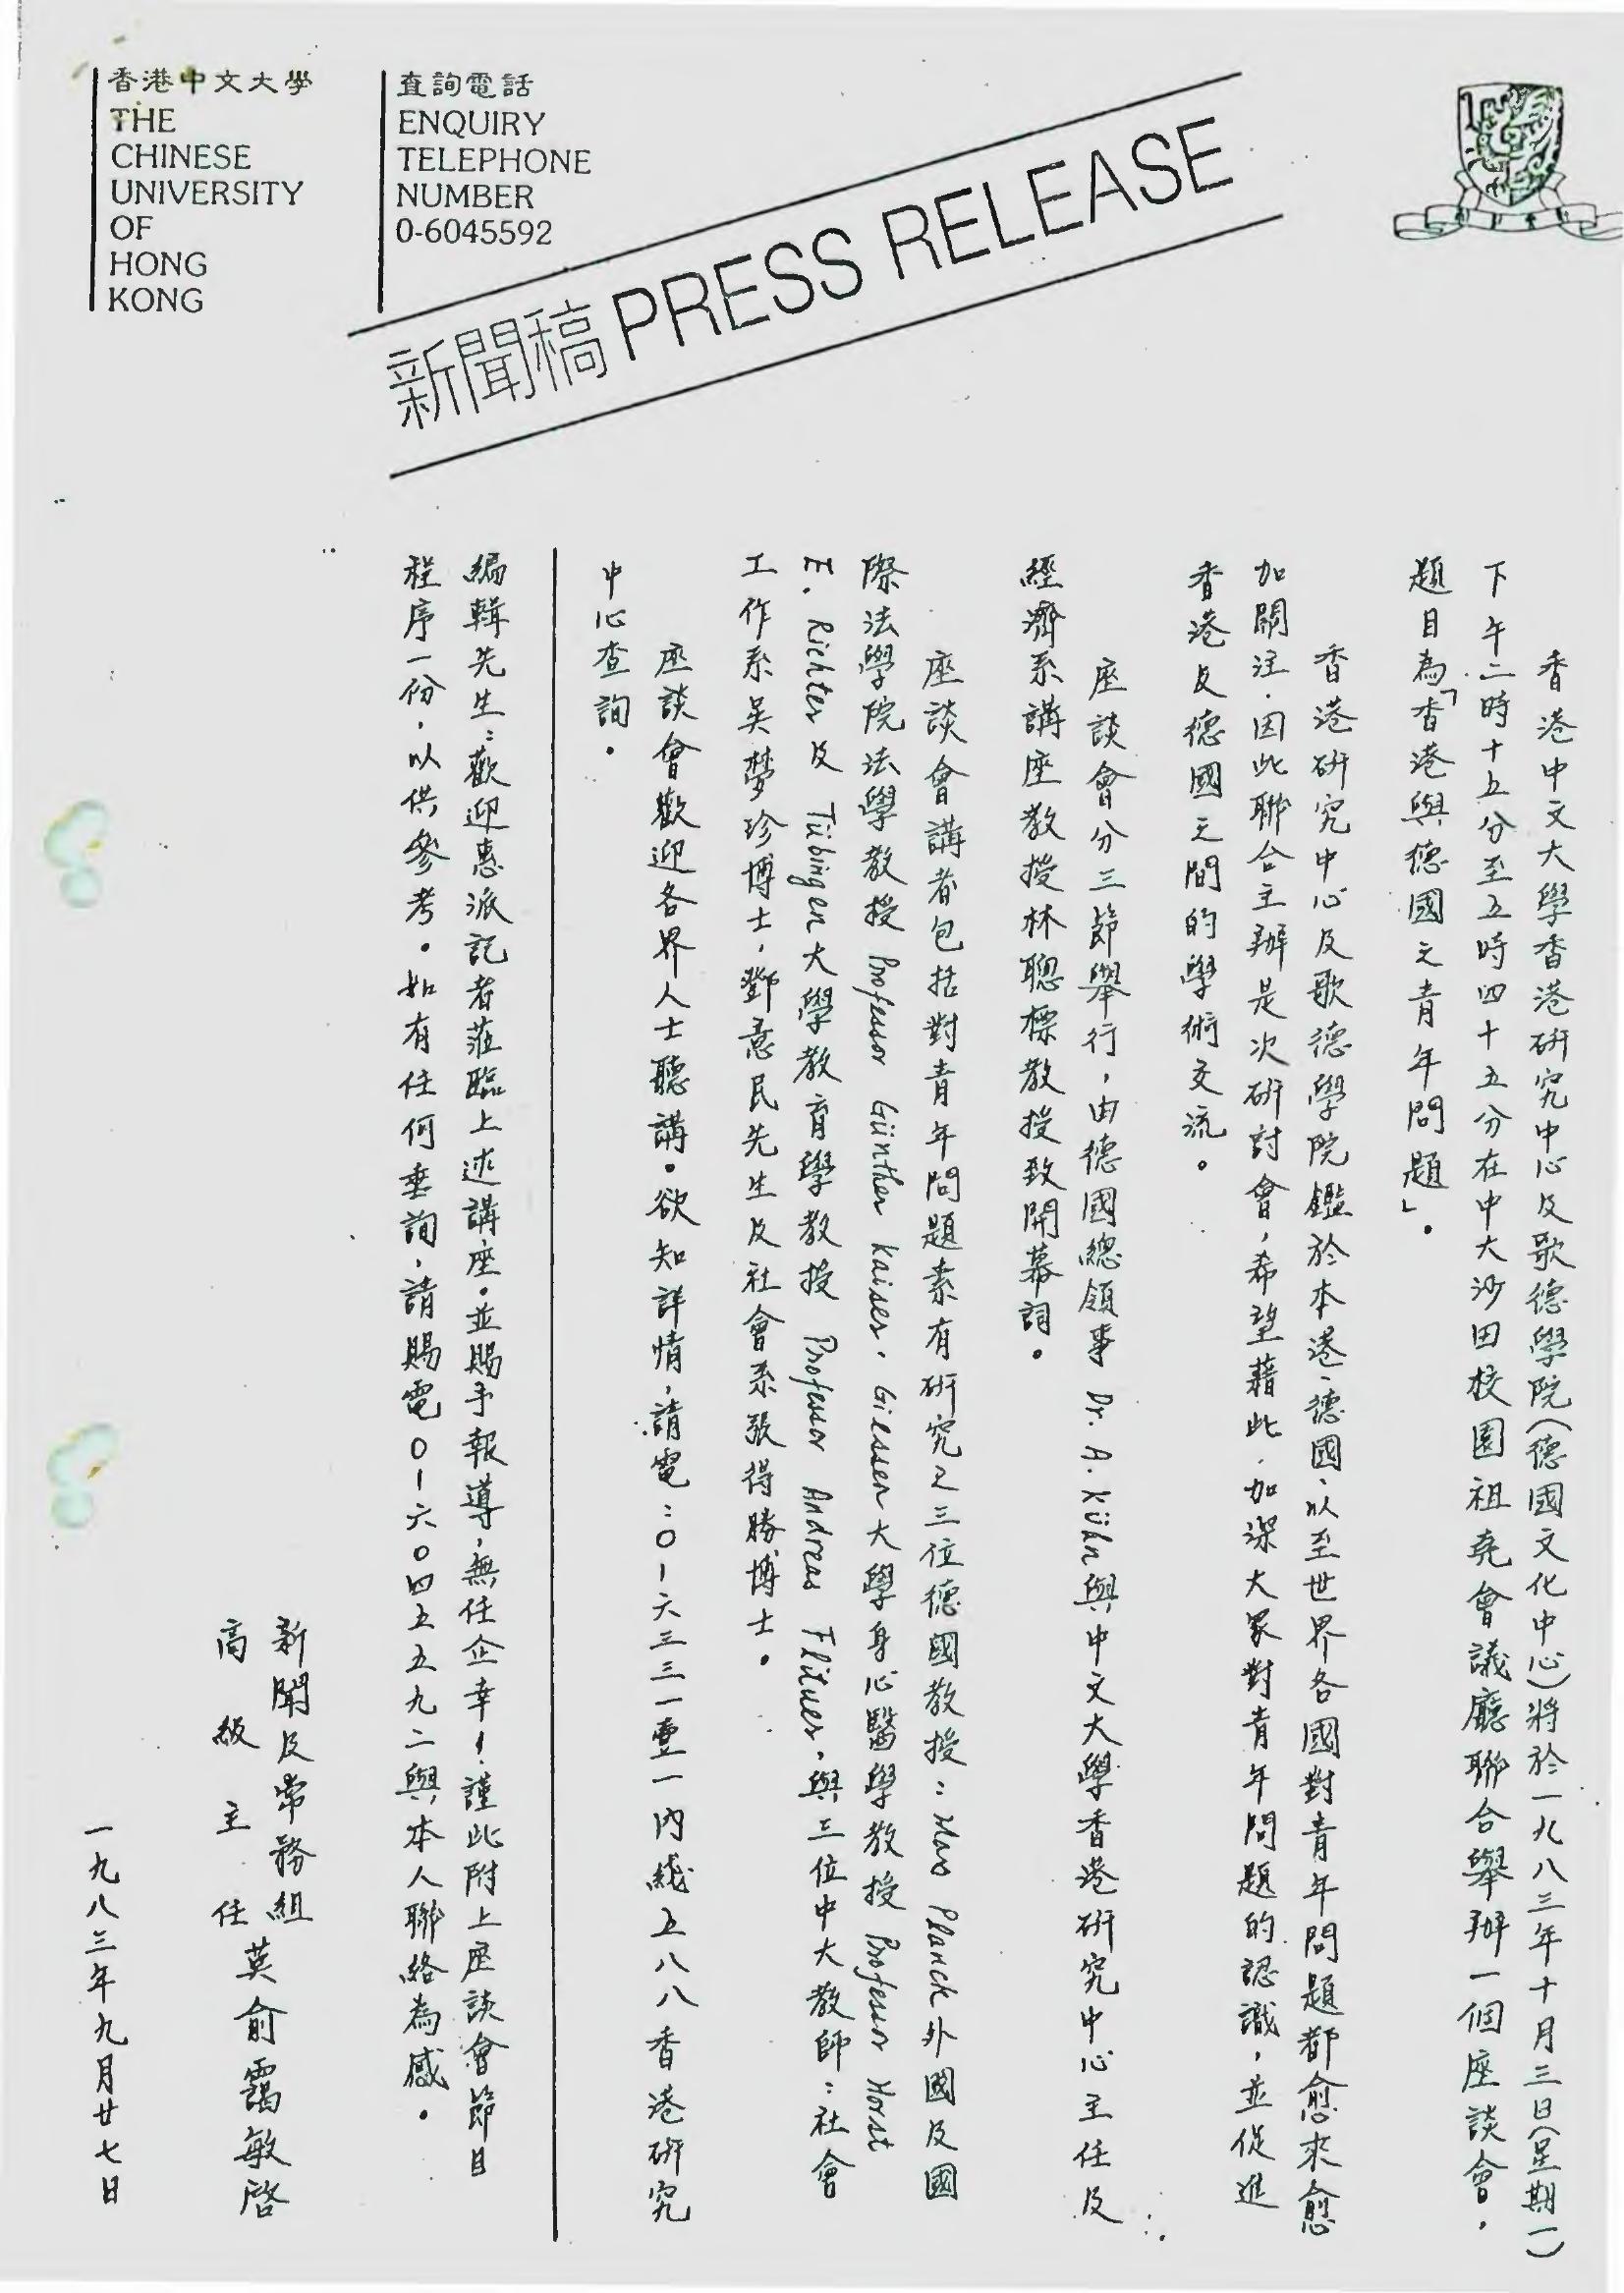 香港中文大學
THE
CHINESE
UNIVERSITY
OF
HONG
KONG
查詢電話
ENQUIRY
TELEPHONE
NUMBER
0-6045592
新聞稿 PRESS RELEASE
香港中文大學香港研究中心及歌德學院(德國文化中心)將於一九八三年十月三日(星期一)
下午二時十五分至五時四十五分在中大沙田校園祖堯會議廳聯合舉辦一個座談會，
題目為「香港與德國之青年問題」。
香港研究中心及歌德學院鑑於本港、德國、以至世界各國對青年問題都愈來愈
加關注，因此聯合主辦是次研討會，希望藉此，加深大眾對青年問題的認識，並促進
香港及德國之間的學術交流。
座談會分三節舉行，由德國總領事 Dr. A. Kühn 與中文大學香港研究中心主任及
經濟系講座教授林聰標教授致開幕詞。
座談會講者包括對青年問題素有研究之三位德國教授：Max Planck 外國及國
際法學院法學教授 Professor Günther Kaiser，Giessen 大學身心醫學教授 Professor Horst
E. Richter 及 Tübingen 大學教育學教授 Professor Andreas Flitner，與三位中大教師：社會
工作系吳夢珍博士，鄧意民先生及社會系張得勝博士。
座談會歡迎各界人士聽講。欲知詳情，請電：0-六三三一壹一一內綫五八八香港研究
中心查詢。
編輯先生：歡迎惠派記者蒞臨上述講座，並賜予報導，無任企幸！謹此附上座談會節目
程序一份，以供參考。如有任何垂詢，請賜電0-六0四五五九二與本人聯絡為感。
新聞及常務組
高級主任 莫俞靄敏啓
一九八三年九月廿七日